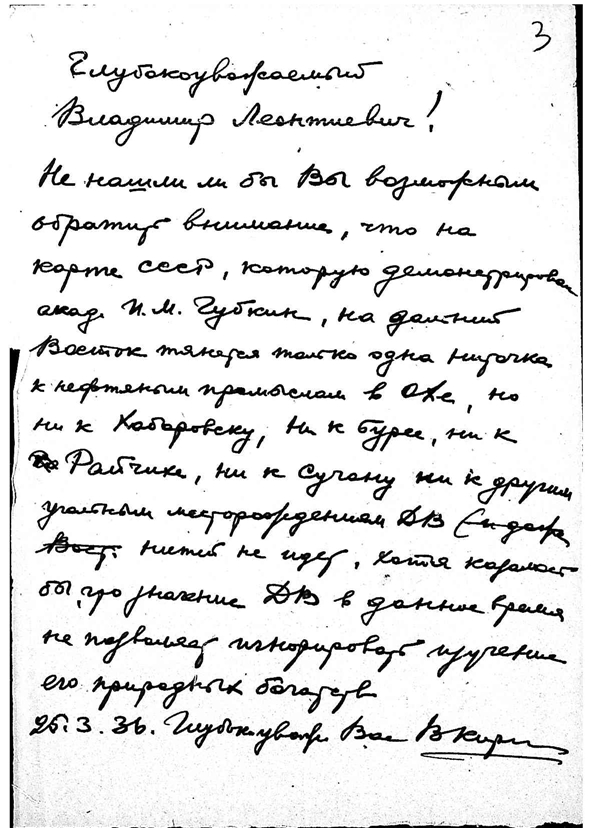 3
Глубокоуважаемый
Владимир Леонтиевич!
Не нашли ли бы Вы возможным
обратить внимание, что на
карте СССР, которую демонстрировал
акад. И.М. Губкин, на дальний
Восток тянется только одна ниточка
к нефтяным промыслам в Охе, но
ни к Хабаровску, ни к Бурее, ни к
Райчихе, ни к Сучану ни к другим
угольным месторождениям ДВ (и даже
Вост. нитей не идет, хотя казалось
бы, что значение ДВ в данное время
не позволяет игнорировать изучение
его природных богатств
25.3.36. Глубокоуваж. Вас